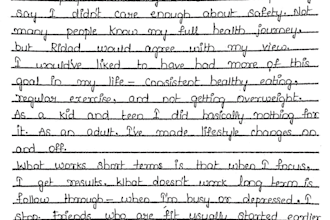 say I didn't care enough about safety. Not
many people know my full health journey,
but Ridad would agree with my view.
I would've liked to have had more of this
goal in my life - Consistent healthy eating,
regular exercise, and not getting overweight.
As a kid and teen I did basically nothing for
it. As an adult, I've made lifestyle changes on
and off.
What works short terms is that when I focus,
I get results. What doesn't work long term is
follow through - when I'm busy or depressed, I
stop. Friends who are fit usually started earlier